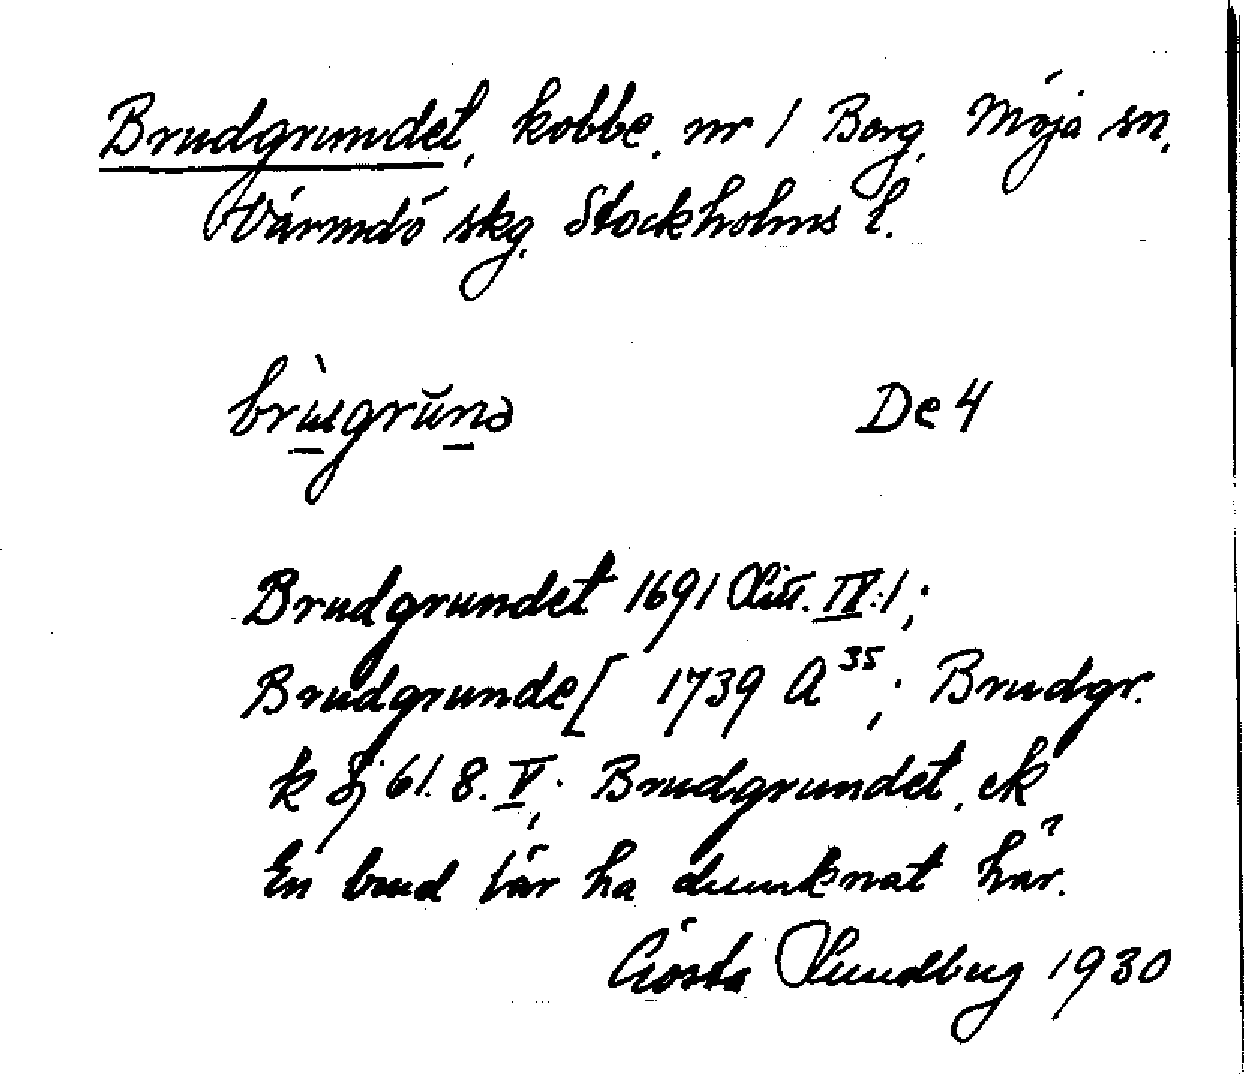 Brudgrundet, kobbe, nr 1 Berg, Möja sn,
Värmdö skg. Stockholms l.
brùgrŭnə De 4
Brudgrundet 1691 Litt. IV:1;
Brudgrunde[ 1739 A 35; Brudgr.
k Sj 61. 8. V; Brudgrundet, ek
En brud lär ha drunknat här.
Gösta Lundberg 1930